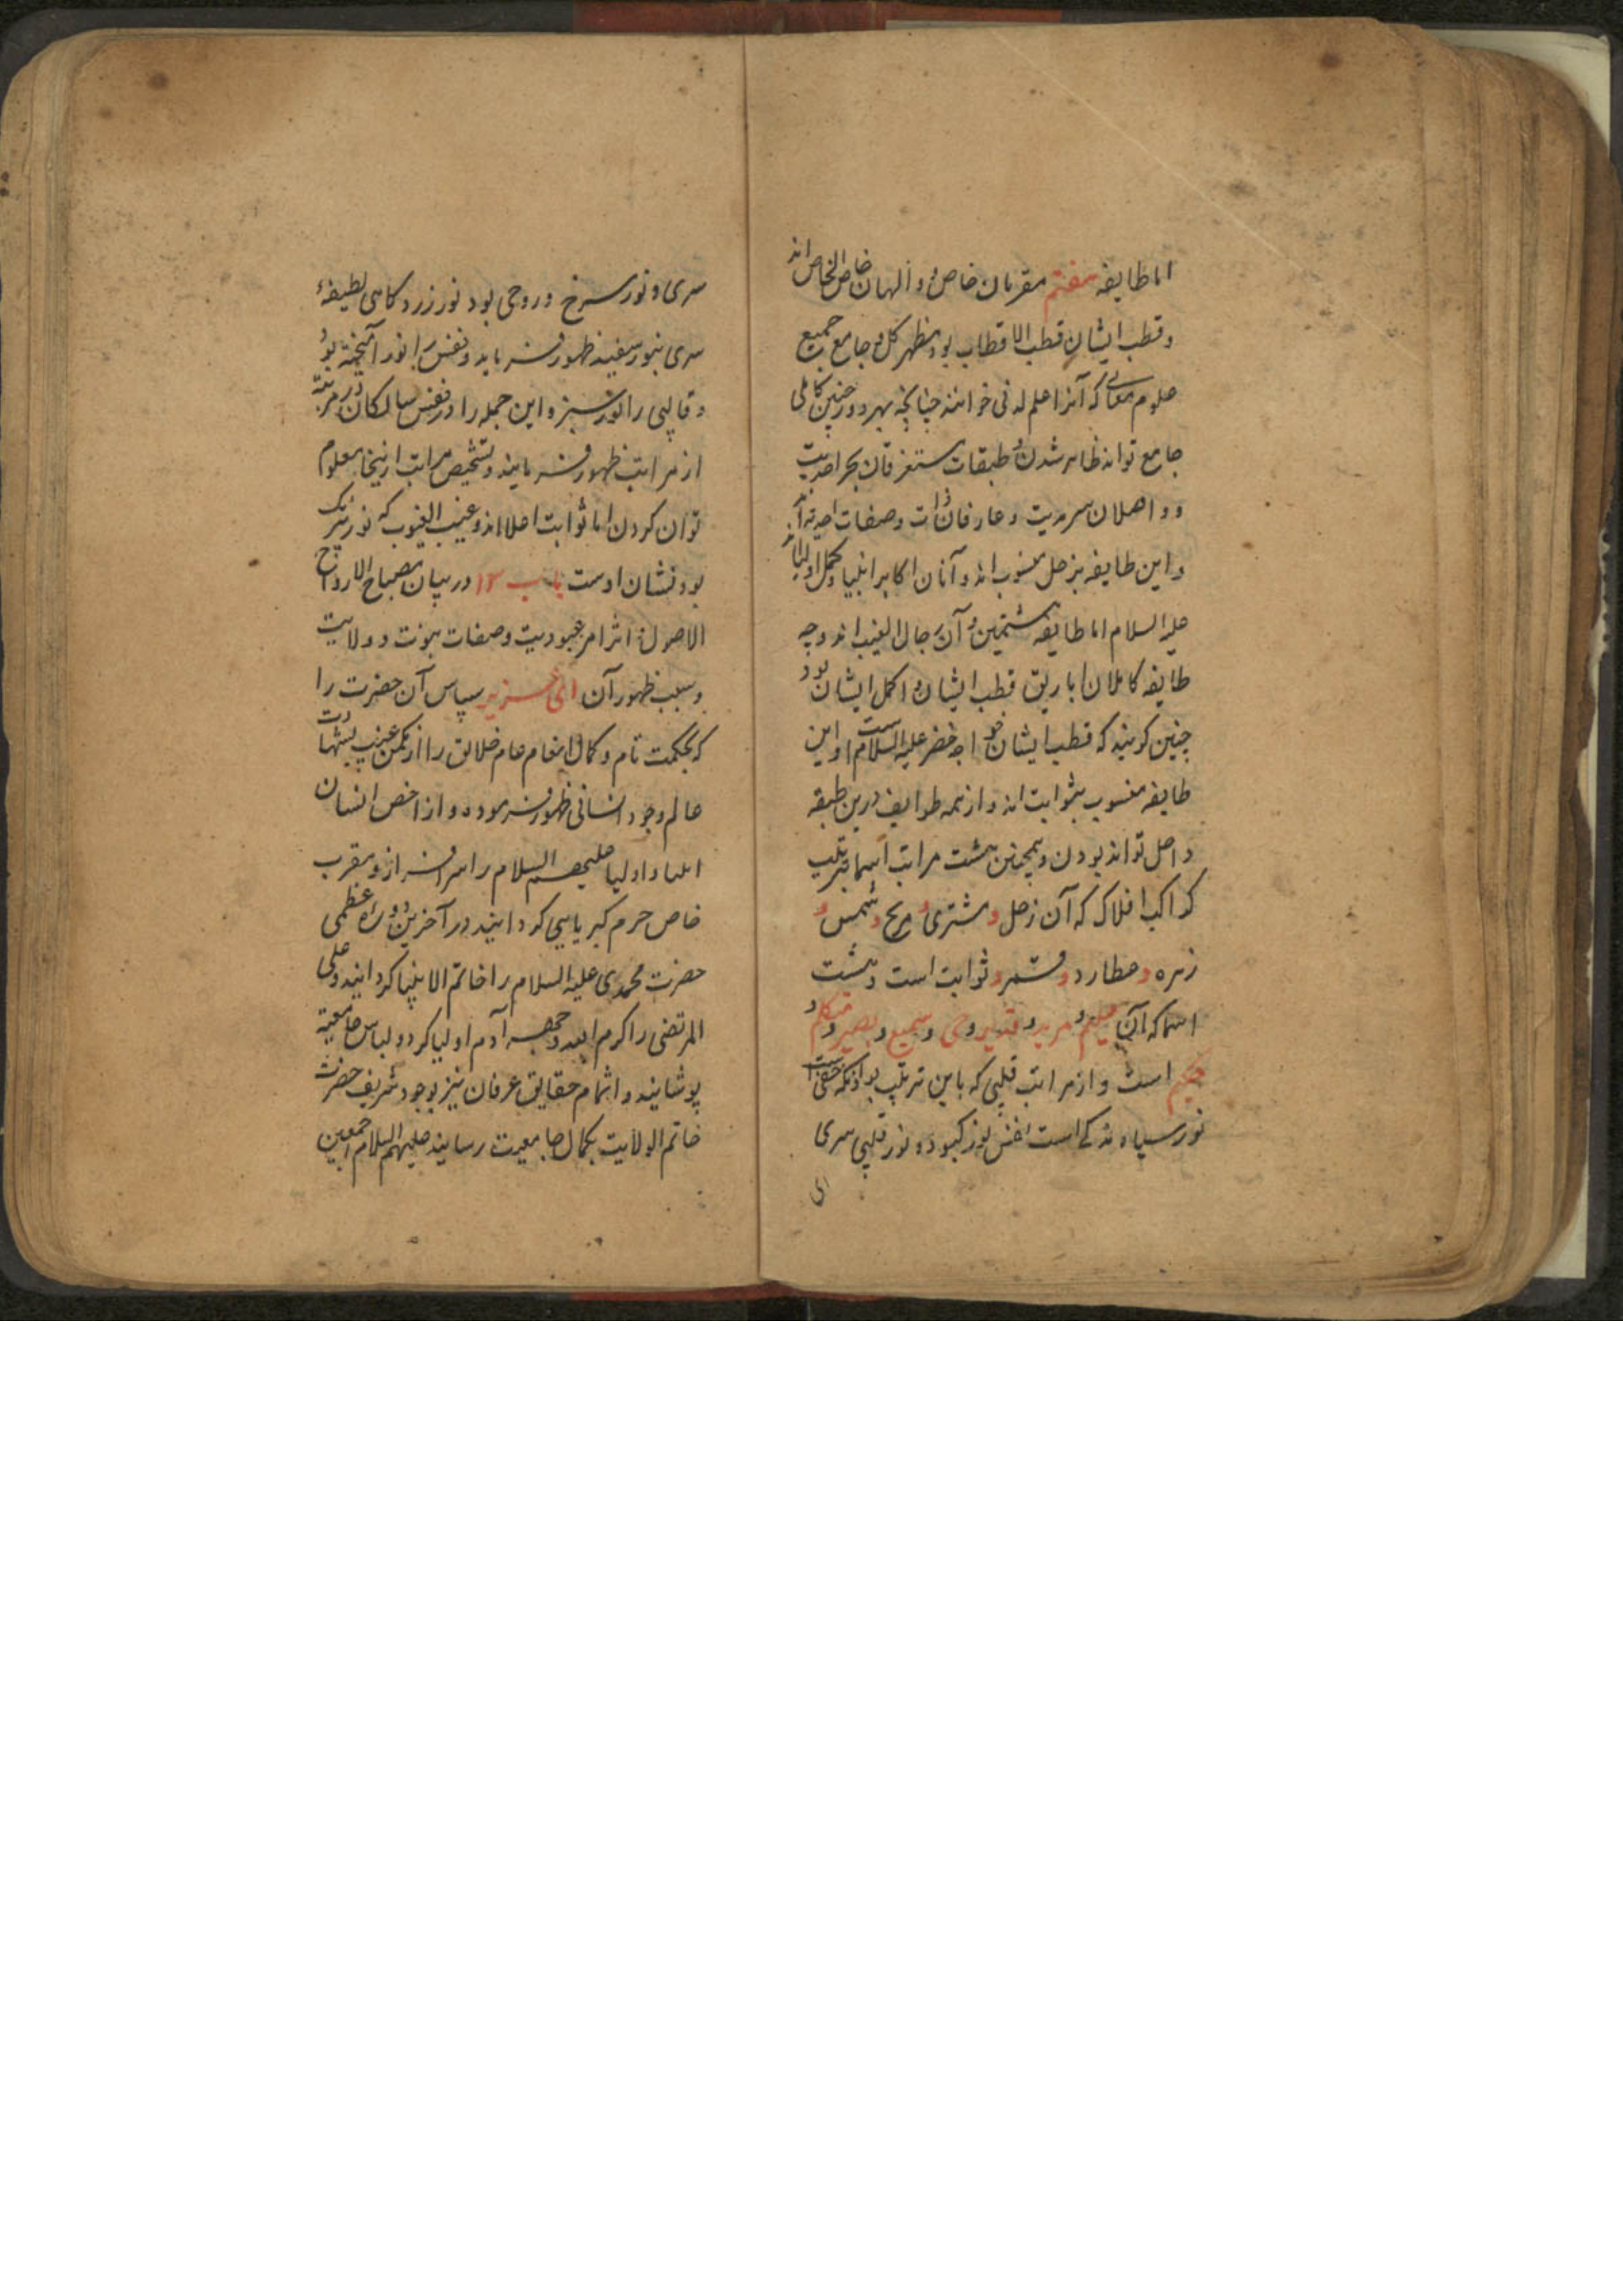 اما طایفه هفتم مقربان خاص و والهان خاص الخاص اند
و قطب ایشان قطب الاقطاب بود و مظهر کل و جامع جمیع
علوم که آنرا علم لدنی خوانند چنانچه بهر دور چنین کاملی
جامع تواند ظاهر شدن و طبقات مستغرقان بحر احدیت
و واصلان سرمدیت و عارفان ذات و صفات احدیه اند
و این طایفه بزحل منسوب اند و آنان اکابر انبیا و کمل اولیااند
علیه السلام اما طایفه هشتمین و آن رجال الغیب اند و چه
طایفه کاملان قطب ایشان و اکمل ایشان بود
چنین کویند که قطب ایشان خواجه خضر علیه السلام است و این
طایفه منسوب بثوابت اند و از همه طوایف درین طبقه
واصل تواند بودن و همچنین هشت مراتب اسما بترتیب
کواکب افلاک که آن زحل و مشتری و مریخ و شمس و
زهره و عطارد و قمر و ثوابت است و هشت
اسما که آن علیم و مرید و قدیر و حی و سمیع و بصیر و متکلم و
حکیم است و از مراتب قلبی که باین ترتیب بود
نور سیاه است نور کبود و نور قلبی سری
سری و نور سرخ و روحی بود نور زرد کاهی لطیفهٔ
سری بنور سفید ظهور فرماید و نفس را نور آمیخته بود
و قالبی را نور سبز و این جمله را در نفس سالکان در مرتبهٔ
از مراتب ظهور فرمایند و تشخیص مراتب ازینجا معلوم
توان کردن اما ثوابت اعلا اند و غیب الغیوب که نور بیرنک
بود نشان اوست باب ۱۲ در بیان مصباح الارواح
الاصول اثر امر عبودیت و صفات نبوت و ولایت
و سبب ظهور آن ای عزیز سپاس آن حضرت را
که بحکمت تام و کمال انعام عام خلایق را از مکمن غیب بشهادت
عالم وجود انسانی ظهور فرموده و از اخص انسان
انبیا و اولیا علیهم السلام را سرافراز و مقرب
خاص حرم کبریایی کردانید در آخرین دوره عظمی
حضرت محمدی علیه السلام را خاتم الانبیا کردانید و علی
المرتضی را کرم الله وجهه آدم اولیا کرد و لباس جامعیة
پوشانید و اتمام حقایق عرفان نیز بوجود شریف حضرت
خاتم الولایت بکمال جامعیت رسانید علیهم السلام اجمعین